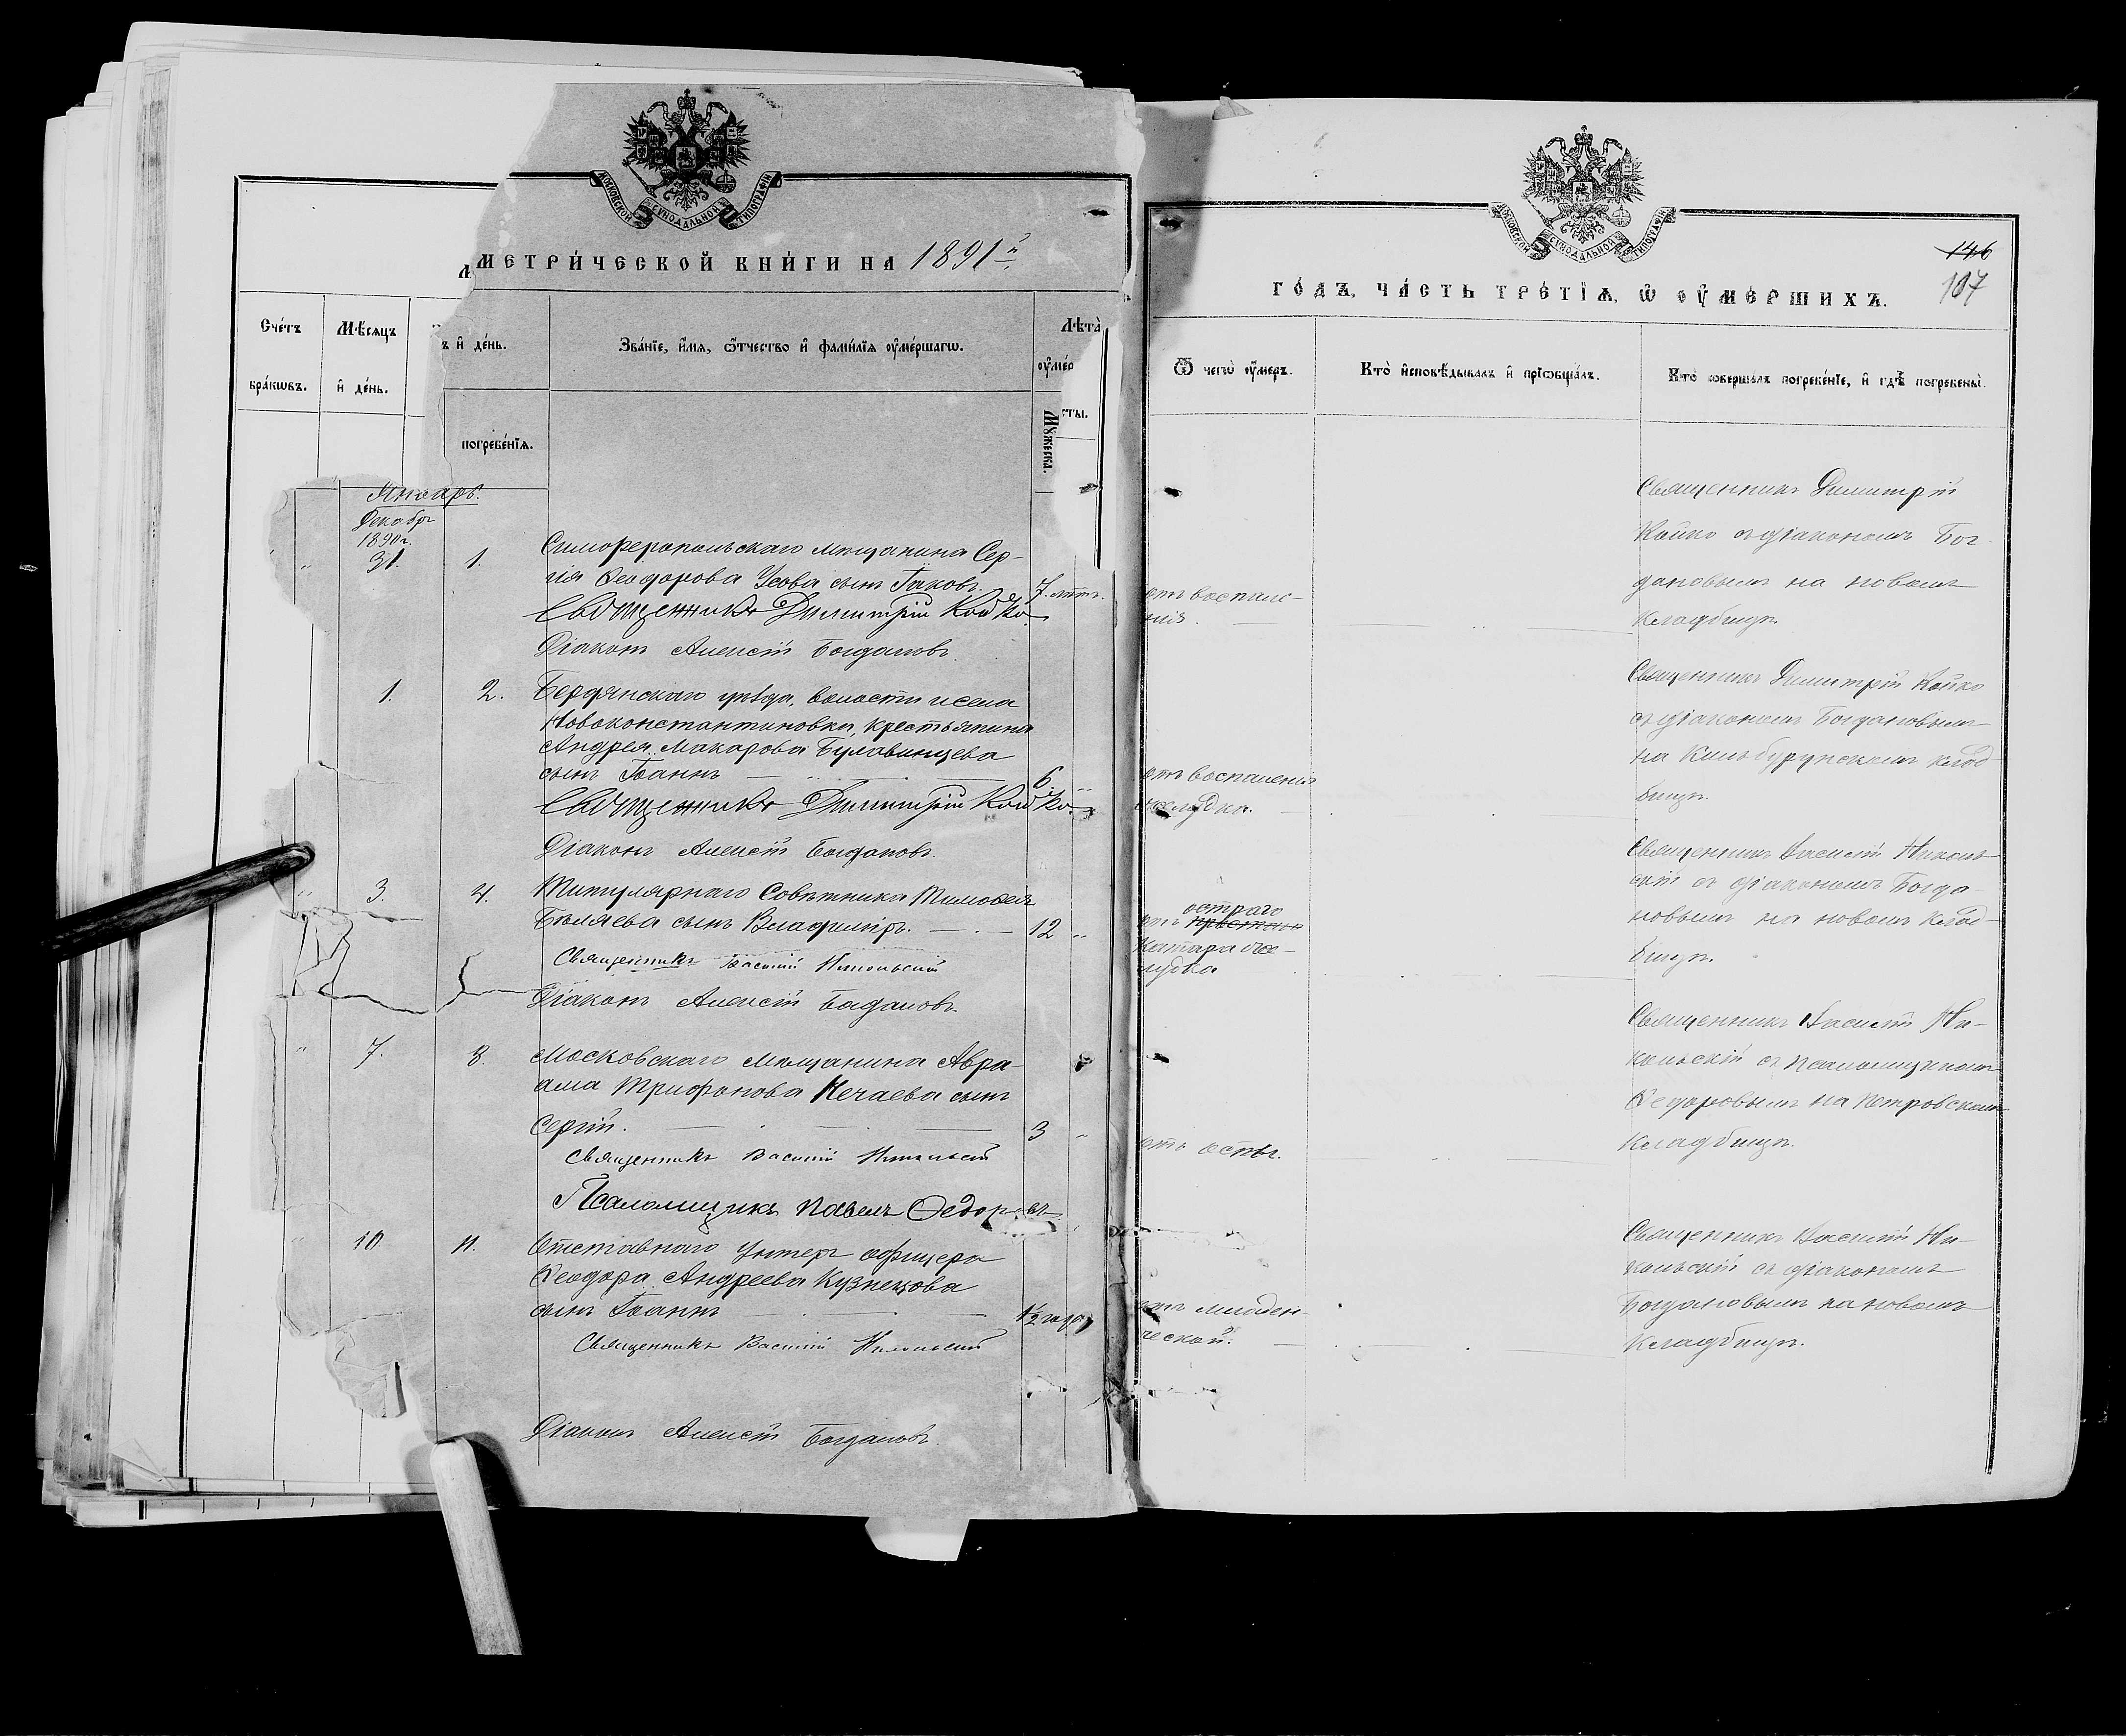 МОСКОВСКОЙ СѴНОДАЛЬНОЙ ТИПОГРАФІИ
МЕТРИ́ЧЕСКОЙ КНИ́ГИ НА 1891й
Сче́тъ
бра́кѡвъ.
Мѣ́сяцъ
и҆ де́нь.
ъ и҆ де́нь.
погребе́нїя.
Зва́нїе, и҆́мя, ѻ҆́тчество и҆ фами́лїя ᲂу҆ме́ршагѡ.
Лѣта̀
ᲂу҆ме́р
сты.
Мꙋ́жеска.
Январь.
Декабр
1890 г.
31. 1. Симферопольскаго мѣщанина Сер-
гія Ѳеодорова Усова сынъ Іаковъ. 7. лѣтъ.
Священникъ Димитрій Койко
Діаконъ Алексій Богдановъ.
1. 2. Бердянскаго уѣзда, волости и села
Новоконстантиновки, крестьянина
Андрея Макарова Булавинцева
сынъ Іоаннъ 6
Священникъ Димитрій Койко
Діаконъ Алексій Богдановъ.
" 3. 4. Титулярнаго Совѣтника Тимофея
Бѣляева сынъ Владиміръ. 12 "
Священникъ Василій Никольскій
Діаконъ Алексій Богдановъ.
" 7. 8. Московскаго мѣщанина Авра-
ама Трифонова Нечаева сынъ
Сергій. 3 "
Священникъ Василій Никольскій
Псаломщикъ Павелъ Федоровъ.
" 10. 11. Отставного унтеръ офицера
Ѳеодора Андреева Кузнецова
сынъ Іоаннъ 1/2 года
Священникъ Василій Никольскій
Діаконъ Алексій Богдановъ.
МОСКОВСКОЙ СѴНОДАЛЬНОЙ ТИПОГРАФІИ
146
107
ГО́ДЪ, ЧА́СТЬ ТРЕ́ТЇѦ, Ѡ҆ ᲂУ҆МЕ́РШИХЪ.
Ѿ чегѡ̀ ᲂу҆́меръ.
Кто̀ и҆сповѣ́дывалъ и҆ прїѡбща́лъ.
Кто̀ соверша́лъ погребе́нїе, и҆ гдѣ̀ погребены̀.
отъ воспале-
нія.
Священникъ Димитрій
Койко съ діакономъ Бог-
дановымъ на новомъ
кладбищѣ.
отъ воспаленія
желудка.
Священникъ Димитрій Койко
съ діакономъ Богдановымъ
на Кильбурунскомъ клад-
бищѣ.
остраго
отъ
катара же-
лудка
Священникъ Василій Николь-
скій съ діакономъ Богда-
новымъ на новомъ клад-
бищѣ.
отъ оспы.
Священникъ Василій Ни-
кольскій съ псаломщикомъ
Ѳедоровымъ на Петровскомъ
кладбищѣ.
отъ младен-
ческой.
Священникъ Василій Ни-
кольскій съ діакономъ
Богдановымъ на новомъ
кладбищѣ.